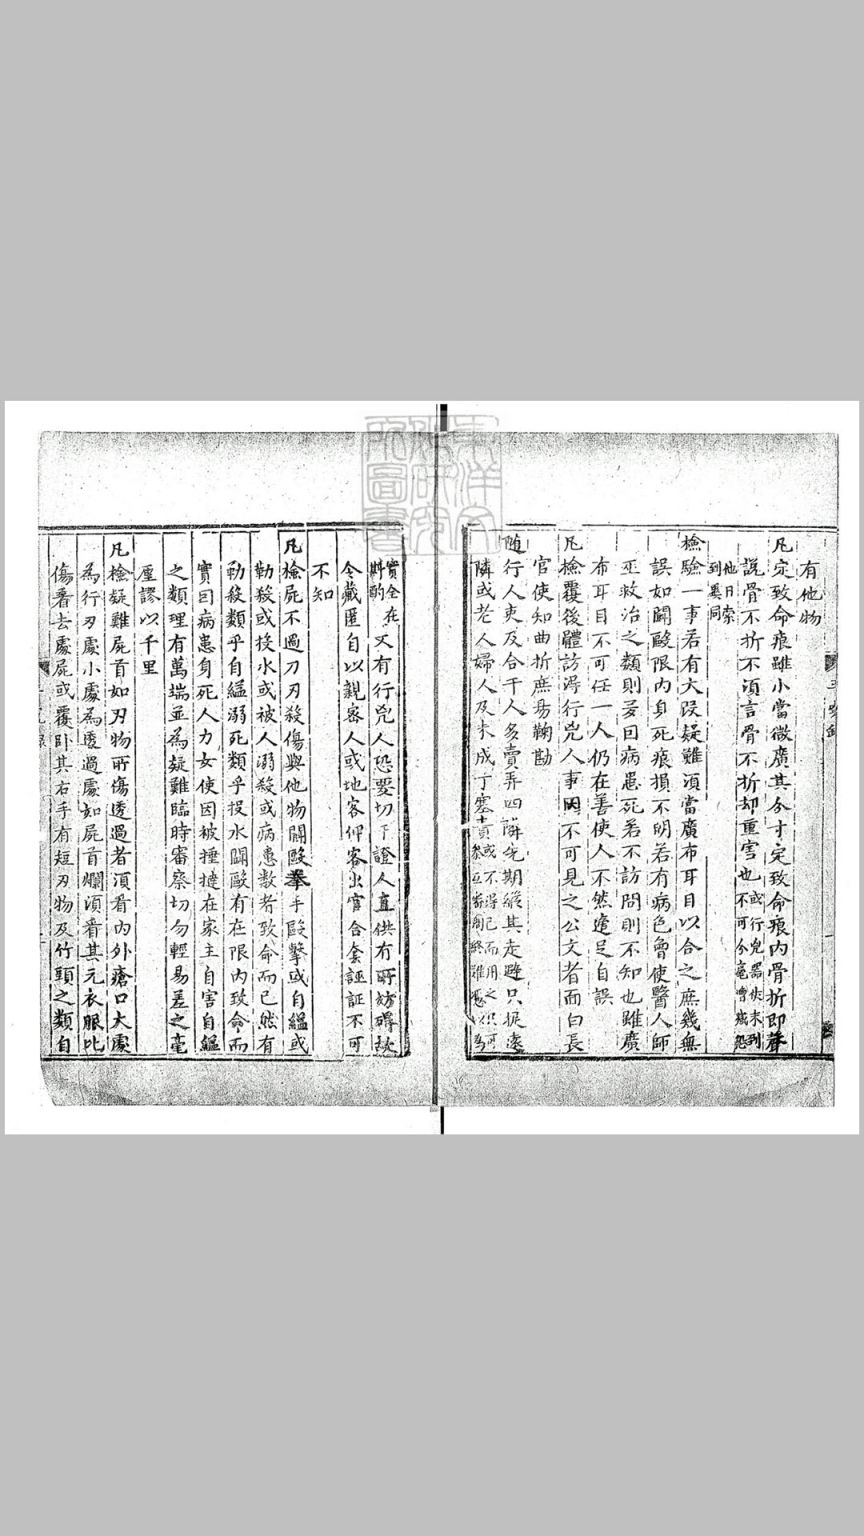 有他物
凡定致命痕雖小當微廣其分寸定致命痕内骨折即聲
說骨不折不湏言骨不折却重害也或行兇器杖未到不可分毫增減恐
他日索到異同
檢驗一事若有大段疑難湏當廣布耳目以合之庶幾無
誤如鬬毆限内身死痕損不明若有病色曾使醫人師
巫救治之類則多因病患死若不訪問則不知也雖廣
布耳目不可任一人仍在善使人不然遶足自誤
凡檢覆後體訪得行兇人事因不可見之公文者面白長
官使知曲折庶易鞠勘
隨行人吏及合干人多賣弄四隣先期縱其走避只捉遠
隣或老人婦人及未成丁塞責或不得已而用之只可參互審問終難憑以為
實全在斟酌又有行兇人恐要切干證人直供有所妨礙故
令藏匿自以親密人或地客佃客出官合套誣証不可
不知
凡檢屍不過刀刃殺傷與他物鬬毆拳手毆擊或自縊或
勒殺或投水或被人溺殺或病患數者致命而已然有
勒殺類乎自縊溺死類乎投水鬬毆有在限内致命而
實因病患身死人力女使因被捶撻在家主自害自縊
之類理有萬端並為疑難臨時審察切勿輕易差之毫
厘謬以千里
凡檢疑難屍首如刃物所傷透過者湏看内外瘡口大處
為行刃處小處為透過處如屍首爛湏看其元衣服比
傷着去處屍或覆卧其右手有短刃物及竹頭之類自